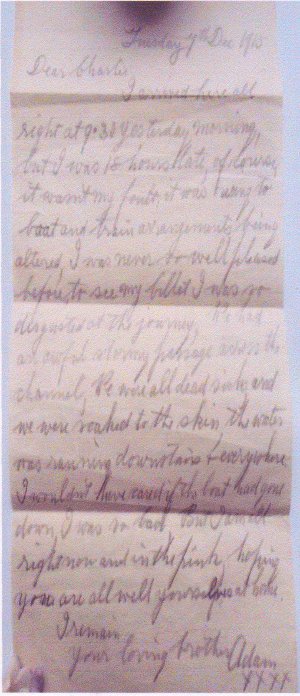 Tuesday 7th Dec 1915
Dear Charlie,
I arrived here all
right at 9.30 yesterday morning,
but I was 18 hours late, of course
it wasn't my fault it was owing to
boat and train arrangements being
altered, I was never so well pleased
before, to see my billet I was so
disgusted at the journey. We had
an awful stormy passage across the
channel, We were all dead sick, and
we were soaked to the skin, the water
was running downstairs & everywhere
I wouldn't have cared if the boat had gone
down, I was so bad. But I am all
right now and in the pink, hoping
you are all well yourselves at home.
I remain
your loving brother Adam
xxxx